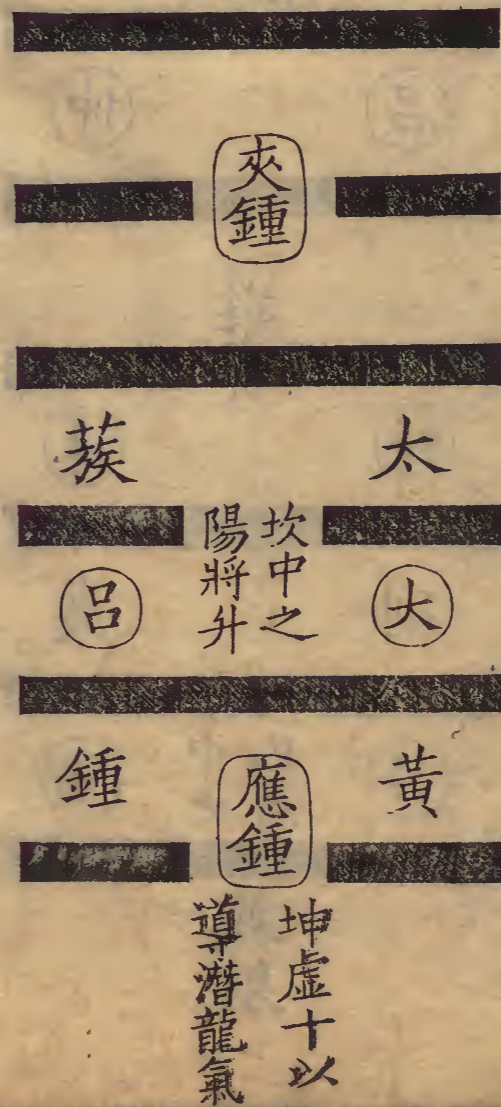 夾鍾
太蔟
坎中之
陽將升
大呂
黃鍾
應鍾
坤虛十以
導潛龍氣